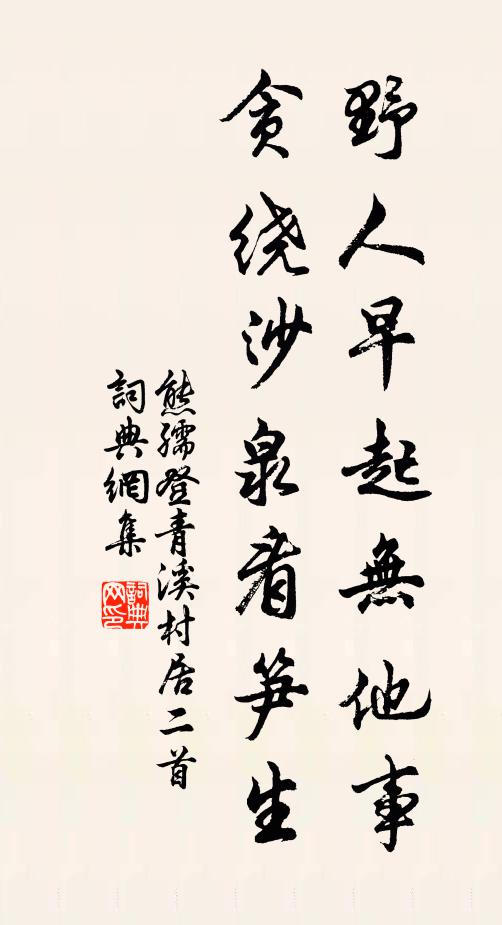 野人早起無他事
貪绕沙泉看笋生
熊孺登青溪村居二首
詞典網集
詞典网印